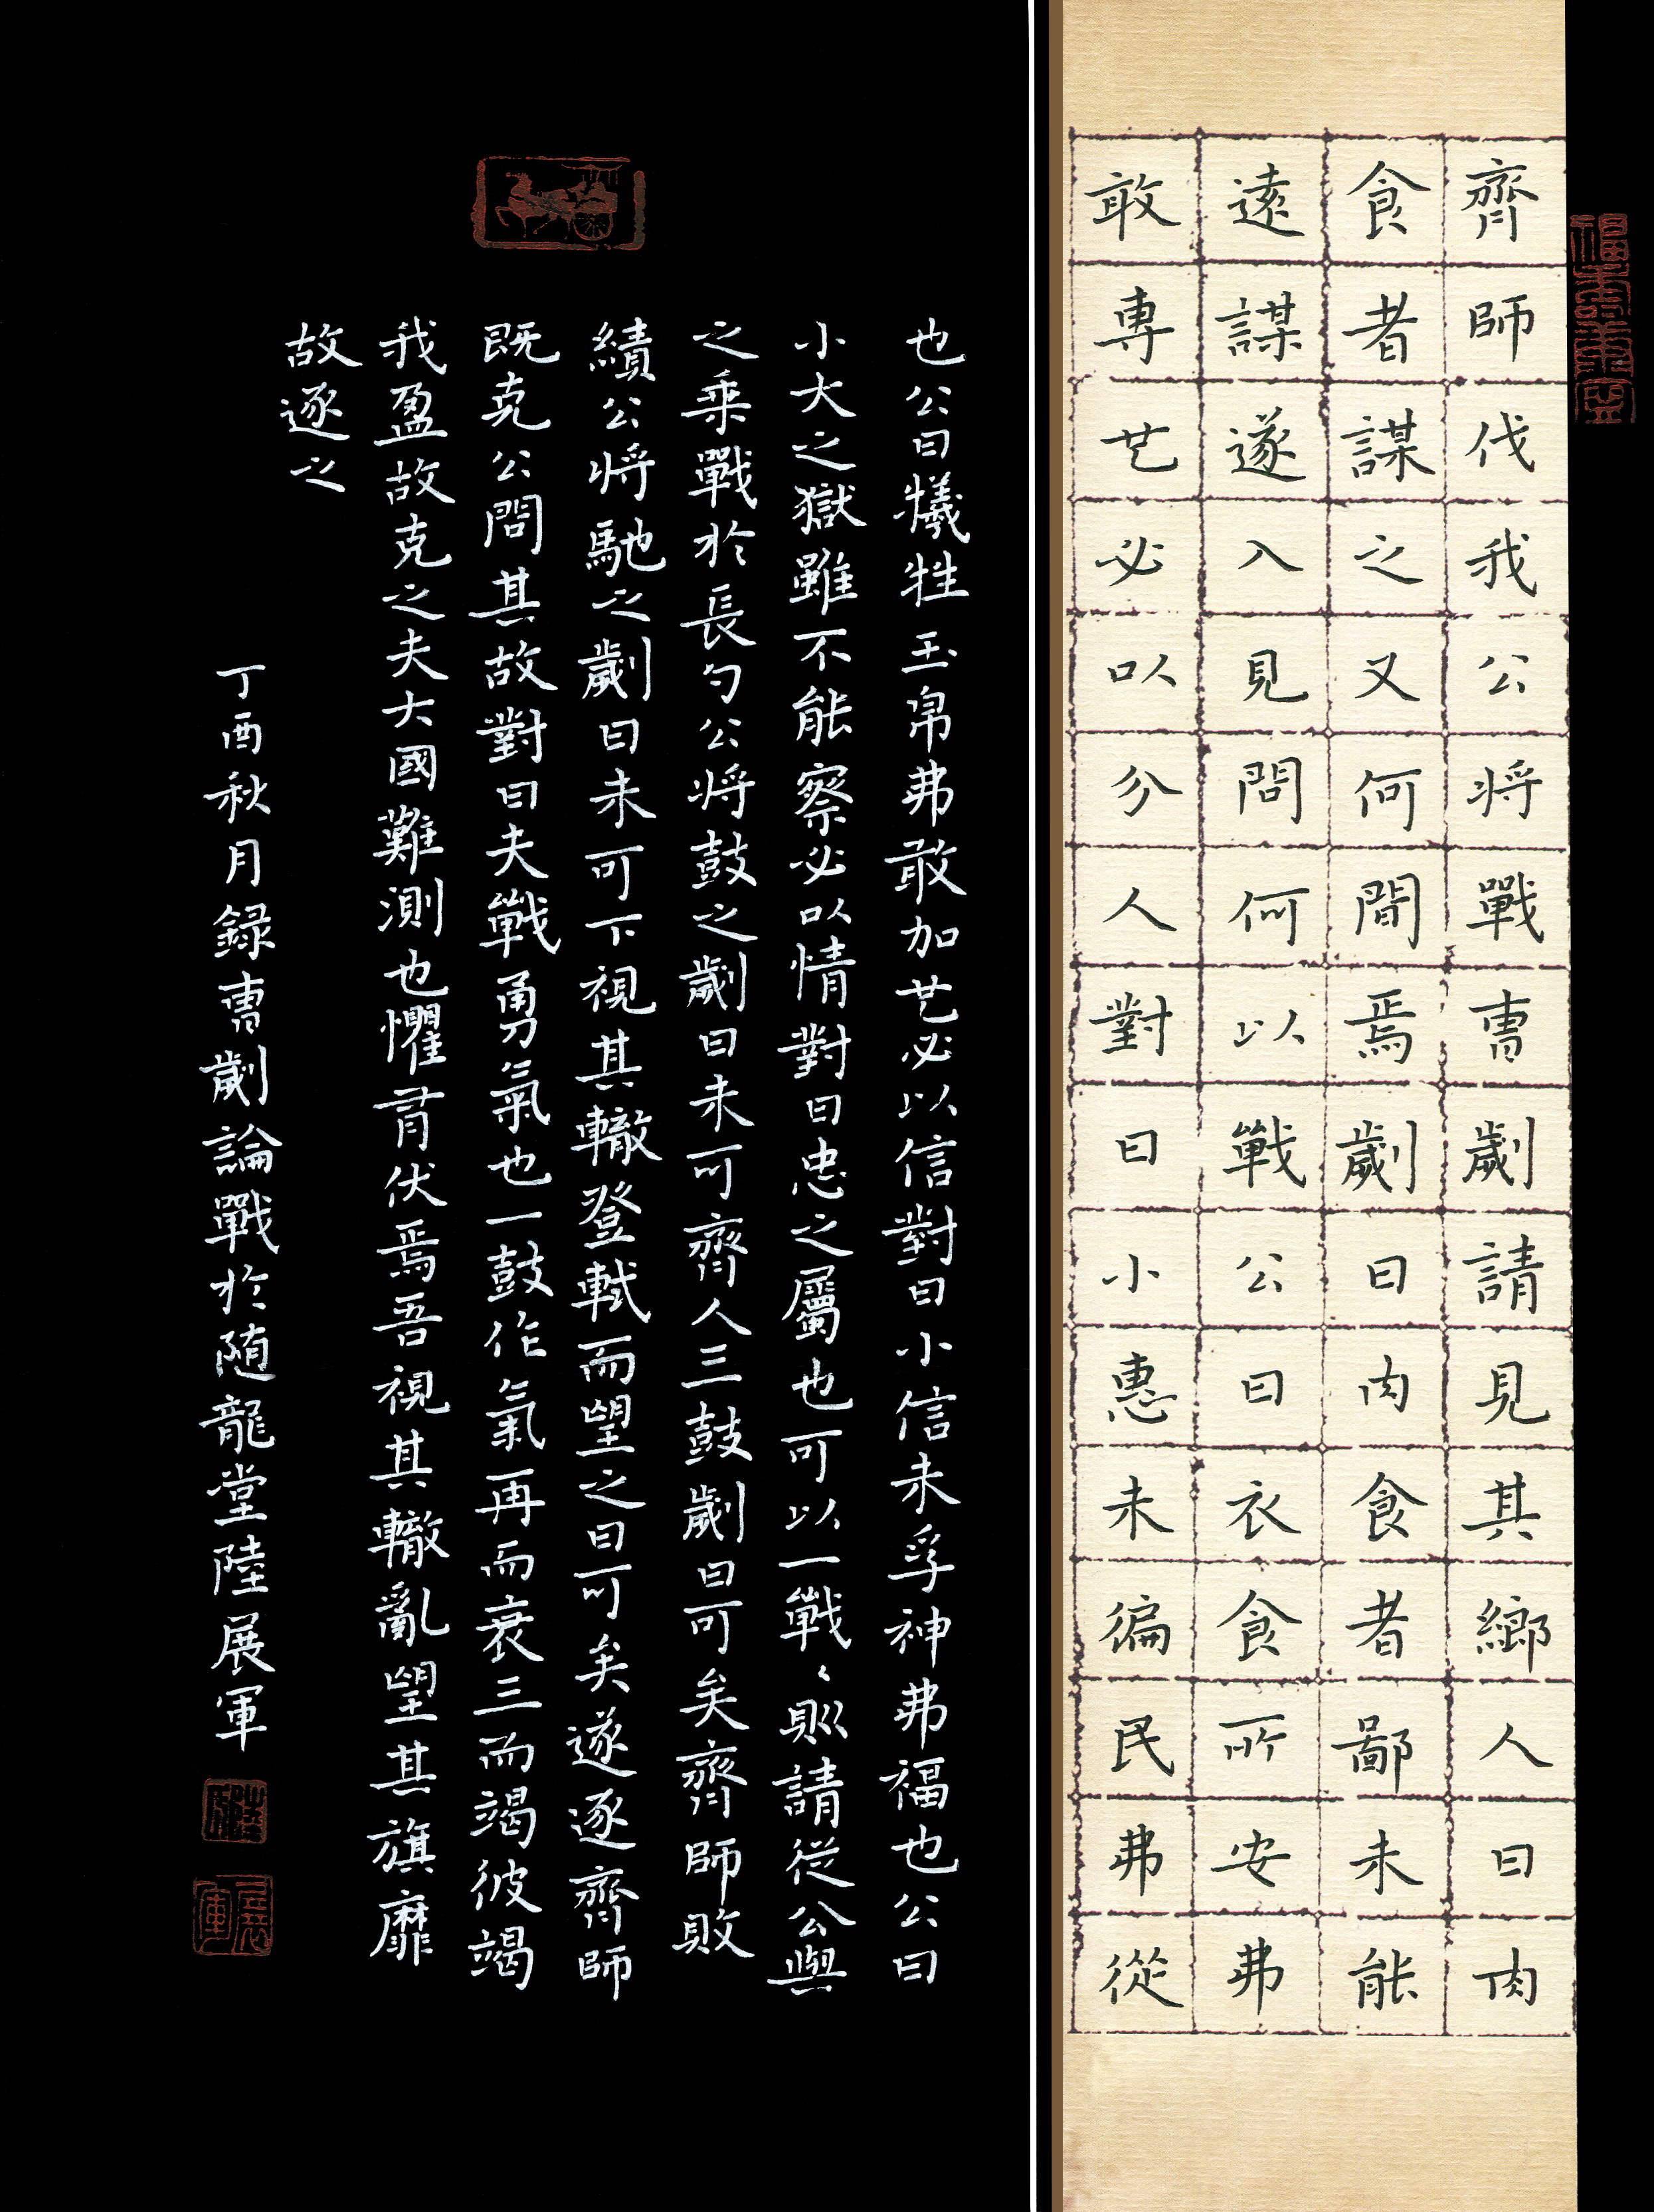 福壽康寧
齊師伐我公将戰曹劌請見其鄉人曰肉
食者謀之又何間焉劌曰肉食者鄙未能
遠謀遂入見問何以戰公曰衣食所安弗
敢專也必以分人對曰小惠未徧民弗從
也公曰犧牲玉帛弗敢加也必以信對曰小信未孚神弗福也公曰
小大之獄雖不能察必以情對曰忠之屬也可以一戰〻則請從公與
之乘戰於長勺公将鼓之劌曰未可齊人三鼓劌曰可矣齊師敗
績公将馳之劌曰未可下視其轍登軾而望之曰可矣遂逐齊師
既克公問其故對曰夫戰勇氣也一鼓作氣再而衰三而竭彼竭
我盈故克之夫大國難測也懼有伏焉吾視其轍亂望其旗靡
故逐之
丁酉秋月録曹劌論戰於随龍堂陸展軍
展軍